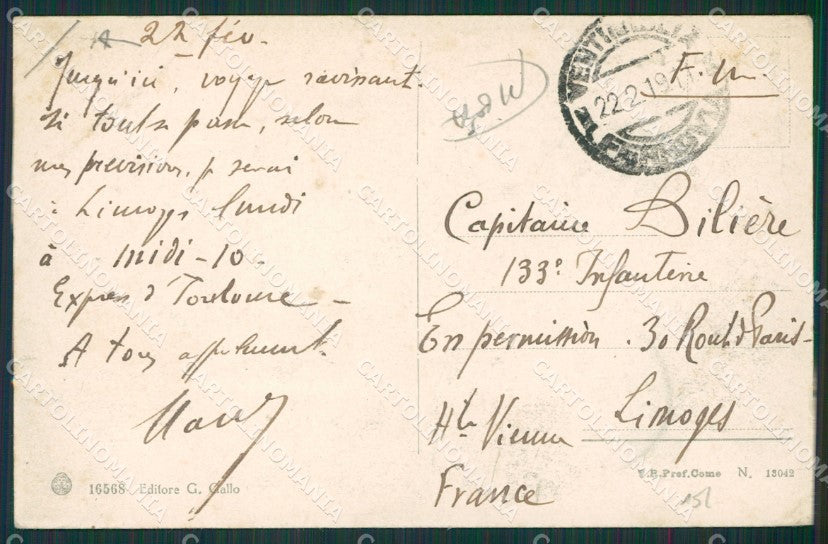 22 fév.
Jusqu'ici, voyage ravissant.
Si tout se passe, selon
mes prévisions, je serai
à Limoges lundi
à midi-10-
Express d'Toulouse -
A tous affectueusement.
F.M.
VENTIMIGLIA
22.2.19
FERROVIA
Capitaine Bilière
133e Infanterie
En permission. 30 Rout. d. Paris-
Limoges
Hte Vienne
France
16568 Editore G. Gallo
V.R.Pref.Como N. 13042
CARTOLINOMANIA